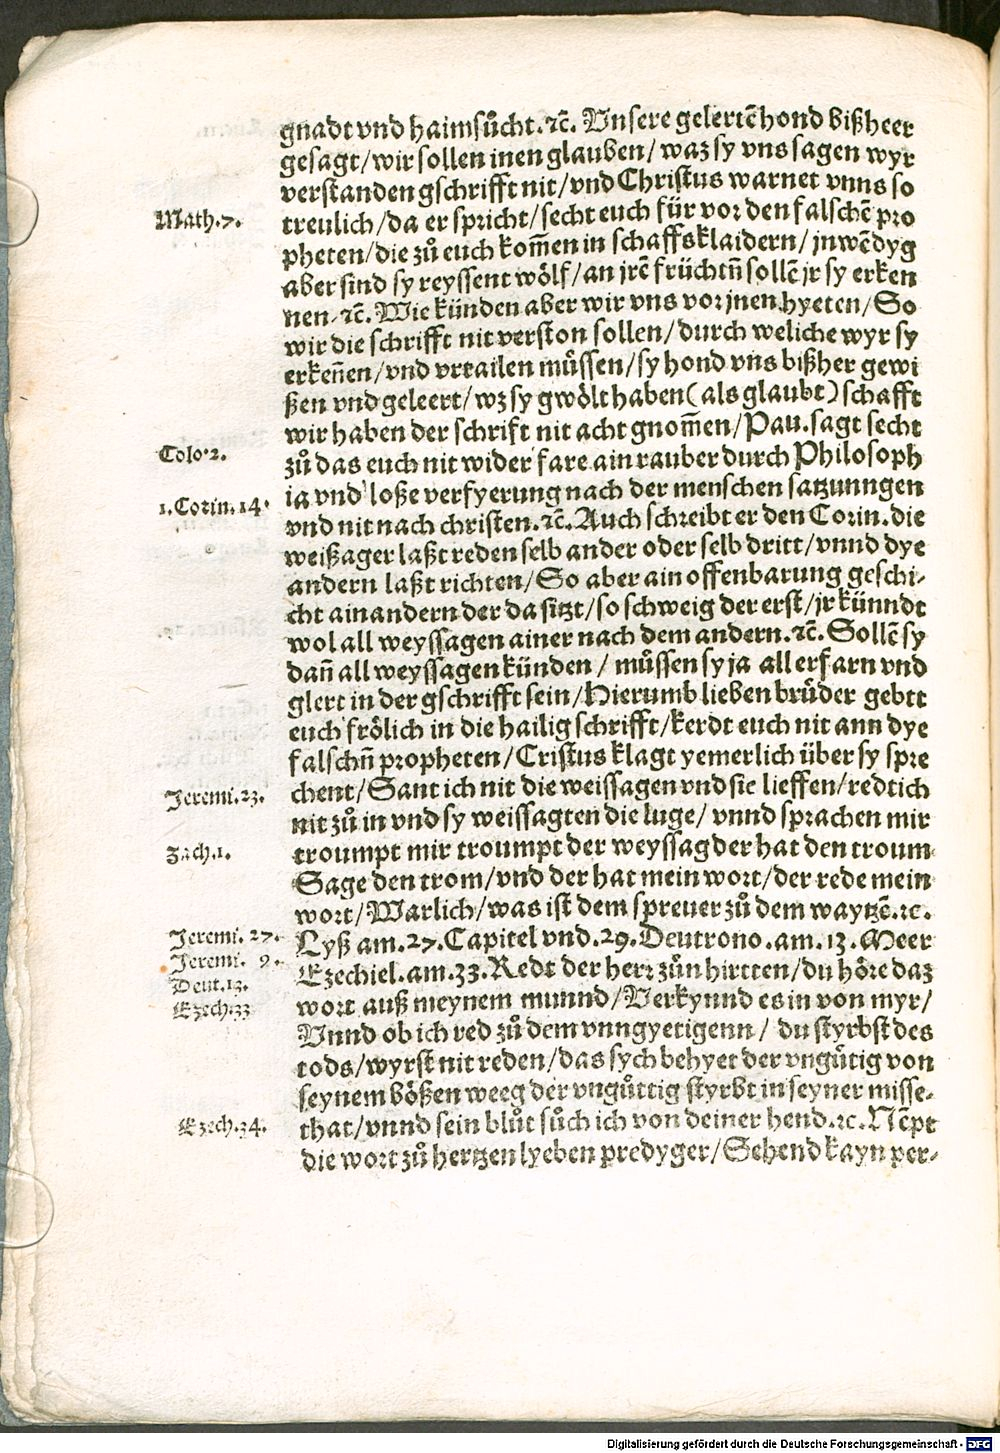 gnadt vnd haimsůcht. ꝛc̃. Vnsere gelertẽ hond bißheer
gesagt/ wir sollen inen glauben/ waz sy vns sagen wyr
verstanden gschrifft nit/ vnd Christus warnet vnns so
Math. 7.
treulich/ da er spricht/ secht euch für vor den falschẽ pro
pheten/ die zů euch kom̃en in schaffsklaidern/ jnwẽdyg
aber sind sy reyssent wölf/ an jrẽ früchtñ sollẽ jr sy erken
nen. ꝛc̃. Wie künden aber wir vns vor jnen hyeten/ So
wir die schrifft nit verston sollen/ durch weliche wyr sy
erkeñen/ vnd vrtailen můssen/ sy hond vns bißher gewi
ßen vnd geleert/ wz sy gwölt haben ( als glaubt ) schafft
wir haben der schrift nit acht gnom̃en/ Pau. sagt secht
Colo. 2.
zů das euch nit wider fare ain rauber durch Philosoph
ia vnd loße verfyerung nach der menschen satzunngen
1. Corin. 14.
vnd nit nach christen. ꝛc̃. Auch schreibt er den Corin. die
weißager laßt reden selb ander oder selb dritt/ vnnd dye
andern laßt richten/ So aber ain offenbarung geschi-
cht ain andern der da sitzt/ so schweig der erst/ jr künndt
wol all weyssagen ainer nach dem andern. ꝛc̃. Sollẽ sy
dañ all weyssagen künden / můssen sy ja all erfarn vnd
glert in der gschrifft sein/ Hierumb lieben brůder gebtt
euch frölich in die hailig schrifft/ kerdt euch nit ann dye
falschñ propheten/ Cristus klagt yemerlich über sy spre
Jeremi. 23.
chent/ Sant ich nit die weissagen vnd sie lieffen/ redt ich
nit zů in vnd sy weissagten die luge/ vnnd sprachen mir
Zach. 1.
troumpt mir troumpt der weyssag der hat den troum
Sage den trom/ vnd der hat mein wort/ der rede mein
wort/ Warlich/ was ist dem spreuer zů dem waytzẽ. ꝛc.
Jeremi. 27.
Lyß am. 27. Capitel vnd. 29. Deutrono. am. 13. Meer
Jeremi. 9.
Ezechiel. am. 33. Redt der herr zůn hirtten/ du höre daz
Deut. 13.
Ezech. 33
wort auß meynem munnd/ Verkynnd es in von myr/
Vnnd ob ich red zů dem vnngyetigenn / du styrbst des
tods/ wyrst nit reden/ das sych behyet der vngůtig von
seynem bößen weeg der vngůttig styrbt in seyner misse-
Ezech. 34.
that/ vnnd sein blůt sůch ich von deiner hend. ꝛc. Nẽpt
die wort zů hertzen lyeben predyger/ Sehend kayn per-
Digitalisierung gefördert durch die Deutsche Forschungsgemeinschaft - DFG